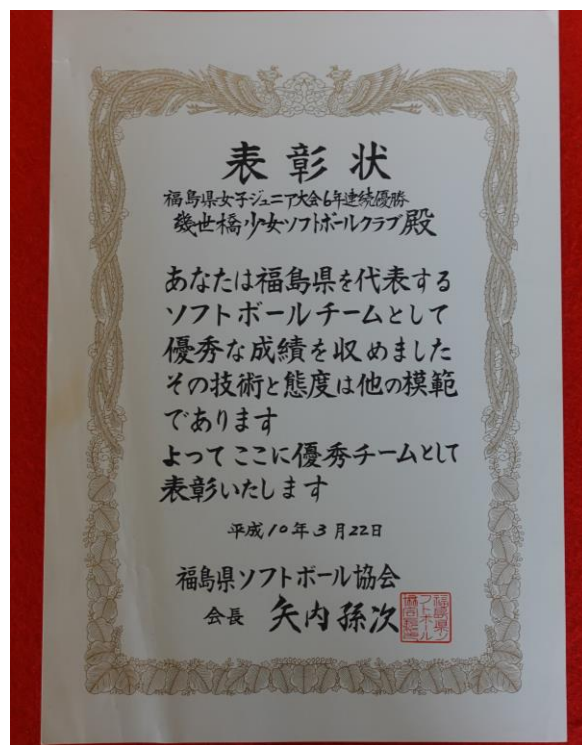 表彰状
福島県女子ジュニア大会6年連続優勝
幾世橋少女ソフトボールクラブ殿
あなたは福島県を代表する
ソフトボールチームとして
優秀な成績を収めました
その技術と態度は他の模範
であります
よってここに優秀チームとして
表彰いたします
平成10年3月22日
福島県ソフトボール協会
会長 矢内孫次